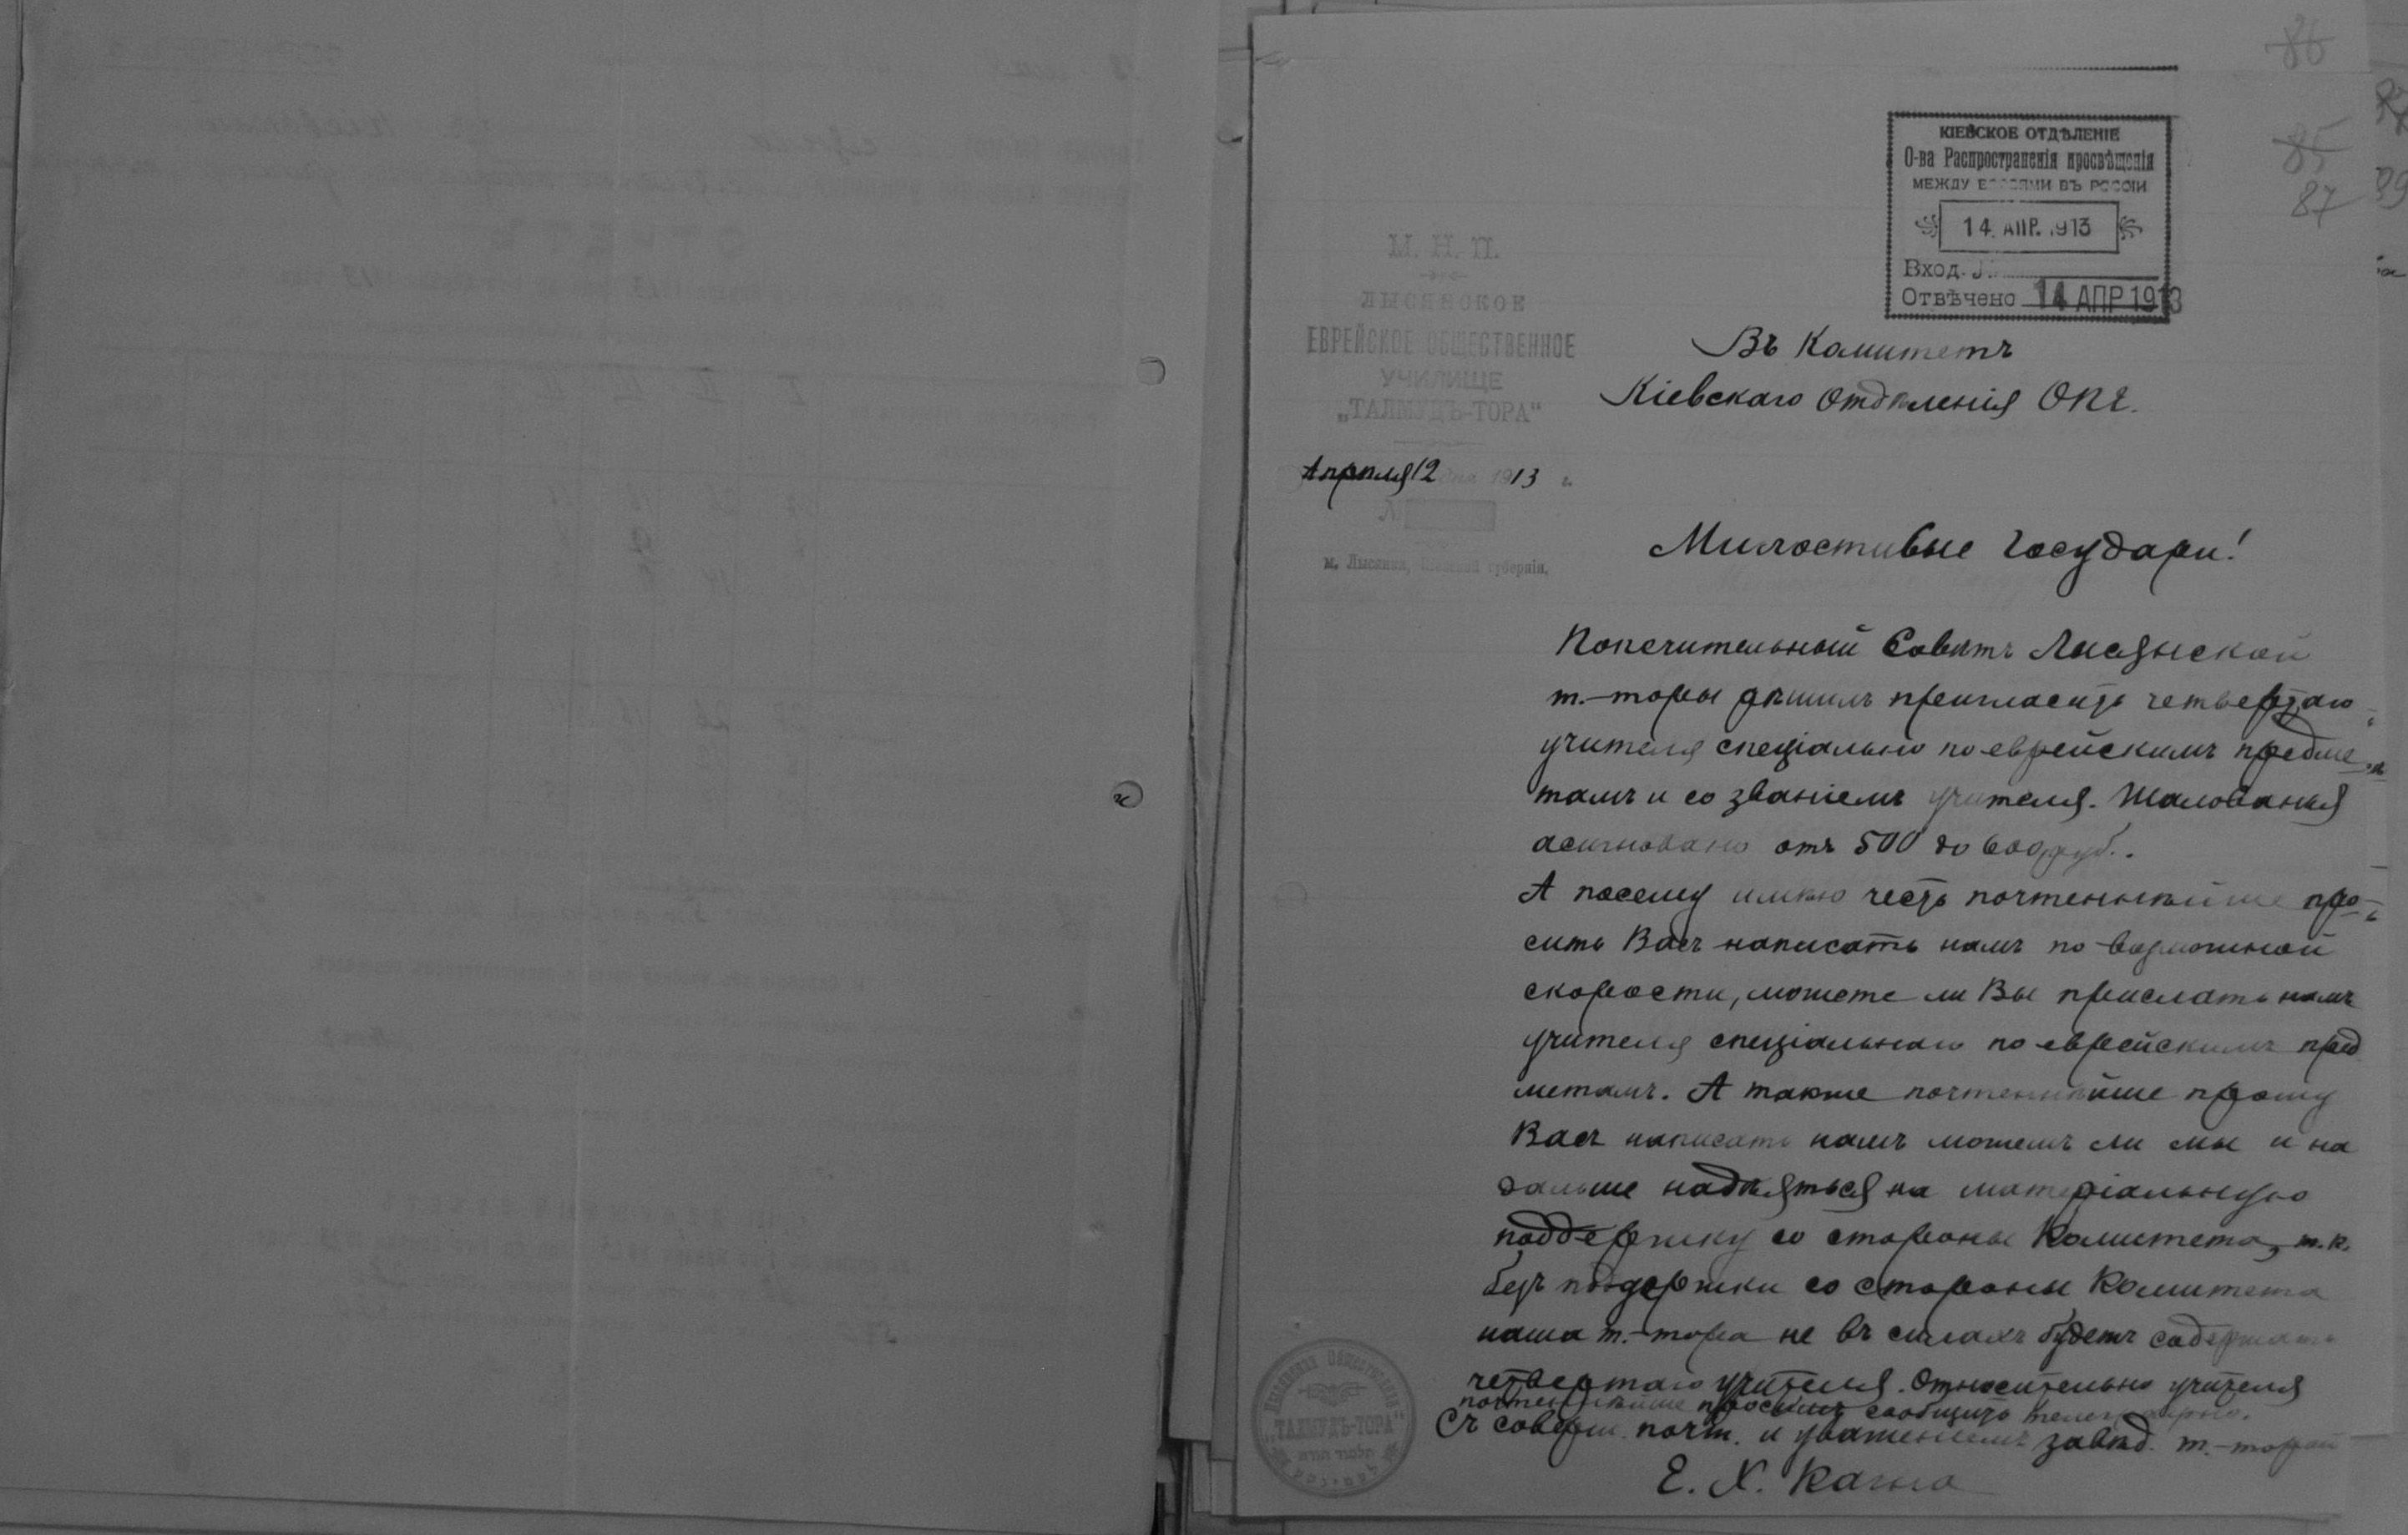 86
85
87
КІЕВСКОЕ ОТДѢЛЕНІЕ
О-ва Распространенія просвѣщенія
МЕЖДУ ЕВРЕЯМИ ВЪ РОССІИ
14. АПР. 1913
Вход. №
Отвѣчено 14 АПР 1913
М. Н. П.
ЛЫСЯНСКОЕ
ЕВРЕЙСКОЕ ОБЩЕСТВЕННОЕ
УЧИЛИЩЕ
„ТАЛМУДЪ-ТОРА“
Апрѣля 12 дня 1913 г.
№
м. Лысянка, Кіевской губерніи.
Въ Комитетъ
Кіевскаго Отдѣленія ОПЕ.
Милостивые Государи!
Попечительный Совѣтъ Лисянской
т.-торы рѣшилъ пригласить четвертаго
учителя спеціально по еврейскимъ предме-
тамъ и со званіемъ учителя. Жалованья
асигновано отъ 500 до 600 руб.
А посему имѣю честь почтеннѣйше про-
сить Васъ написать намъ по возможной
скорости, можете ли Вы прислать намъ
учителя спеціальнаго по еврейскимъ пред
метамъ. А также почтеннѣйше прошу
Васъ написать намъ можемъ ли мы и на
дальше надѣяться на матеріальную
поддержку со стороны Комитета, т.к.
безъ поддержки со стороны Комитета
наша т.-тора не въ силахъ будетъ содержать
четвертаго учителя. Относительно учителя
почтеннѣйше просимъ сообщить телеграфно.
Съ соверш. почт. и уваженіемъ завѣд. т.-торой
Е. Х. Кагна
Лысянская Общественная
„ТАЛМУДЪ-ТОРА“
תלמוד תורה